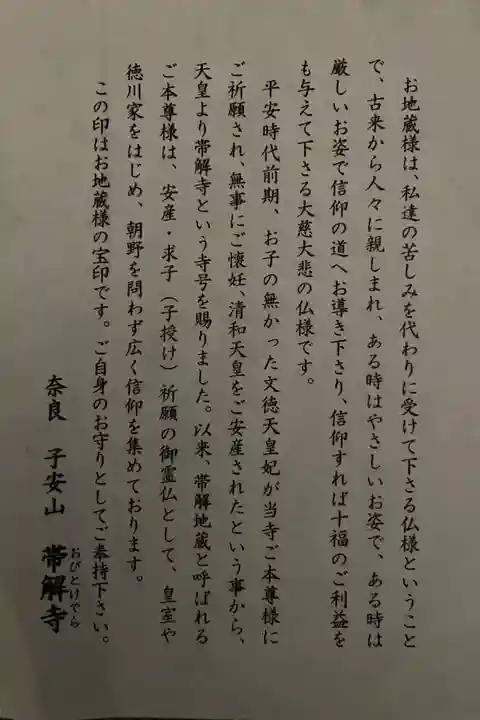 お地蔵様は、私達の苦しみを代わりに受けて下さる仏様ということ
で、古来から人々に親しまれ、ある時はやさしいお姿で、ある時は
厳しいお姿で信仰の道へお導き下さり、信仰すれば十福のご利益を
も与えて下さる大慈大悲の仏様です。
平安時代前期、お子の無かった文徳天皇妃が当寺ご本尊様に
ご祈願され、無事にご懐妊、清和天皇をご安産されたという事から、
天皇より帯解寺という寺号を賜りました。以来、帯解地蔵と呼ばれる
ご本尊様は、安産・求子（子授け）祈願の御霊仏として、皇室や
徳川家をはじめ、朝野を問わず広く信仰を集めております。
この印はお地蔵様の宝印です。ご自身のお守りとしてご奉持下さい。
奈良 子安山 帯解寺
おびとけでら